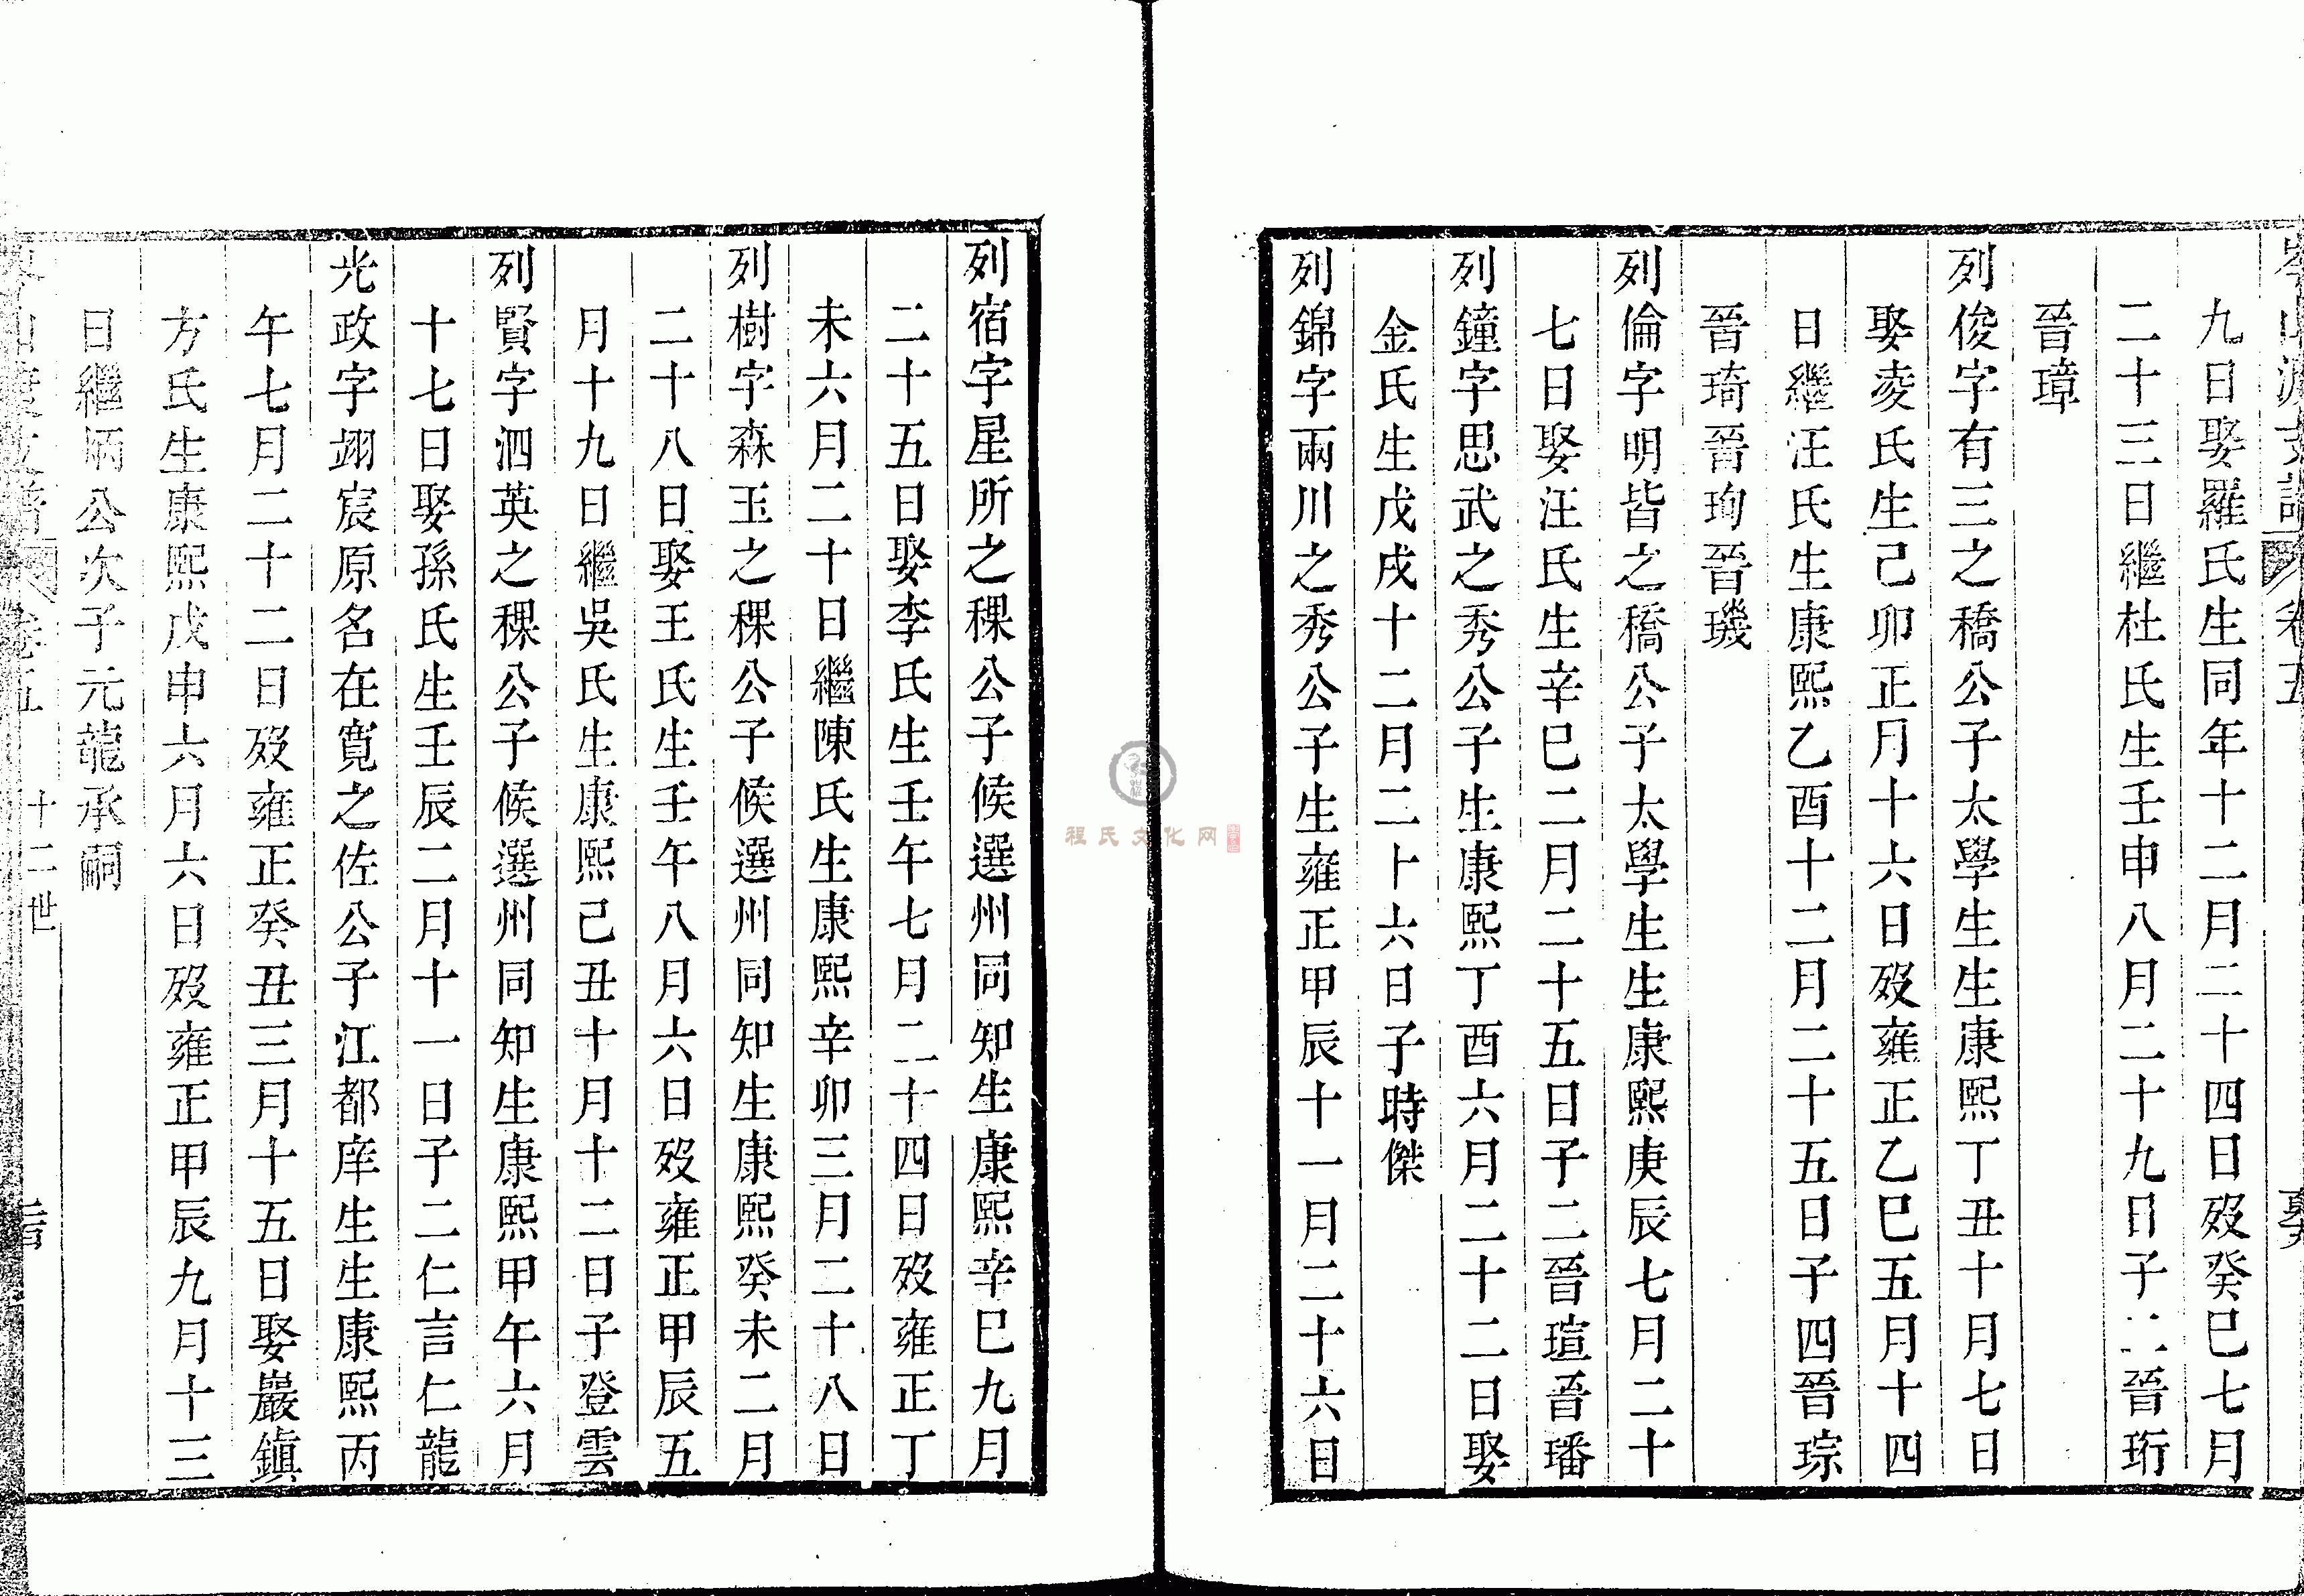 岑山渡支譜 卷五
九日娶羅氏生同年十二月二十四日歿癸巳七月
二十三日繼杜氏生壬申八月二十九日子二晉珩
晉璋
列俊字有三之穚公子太學生生康熙丁丑十月七日
娶凌氏生己卯正月十六日歿雍正乙巳五月十四
日繼汪氏生康熙乙酉十二月二十五日子四晉琮
晉琦晉珣晉璣
列倫字明皆之穚公子太學生生康熙庚辰七月二十
七日娶汪氏生辛巳二月二十五日子二晉瑄晉璠
列鐘字思武之秀公子生康熙丁酉六月二十二日娶
金氏生戊戌十二月二十六日子時傑
列錦字兩川之秀公子生雍正甲辰十一月二十六日
列宿字星所之稞公子候選州同知生康熙辛巳九月
二十五日娶李氏生壬午七月二十四日歿雍正丁
未六月二十日繼陳氏生康熙辛卯三月二十八日
列樹字森玉之稞公子候選州同知生康熙癸未二月
二十八日娶王氏生壬午八月六日歿雍正甲辰五
月十九日繼吳氏生康熙己丑十月十二日子登雲
列賢字泗英之稞公子候選州同知生康熙甲午六月
十七日娶孫氏生壬辰二月十一日子二仁言仁龍
光政字翊宸原名在寬之佐公子江都庠生生康熙丙
午七月二十二日歿雍正癸丑三月十五日娶巖鎮
方氏生康熙戊申六月六日歿雍正甲辰九月十三
日繼炳公次子元龍承嗣
山渡支譜 卷五 十二世
程氏文化网